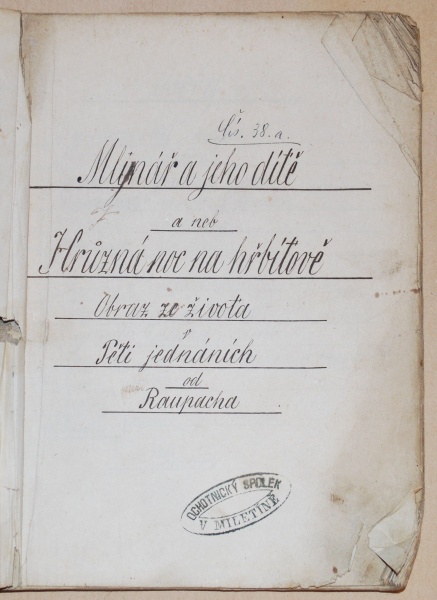 Čís. 38.a.
Mlynář a jeho dítě
a neb
Hrůzná noc na hřbitově
Obraz ze života
v
Pěti jednáních
od
Raupacha
OCHOTNICKÝ SPOLEK
V MILETÍNĚ